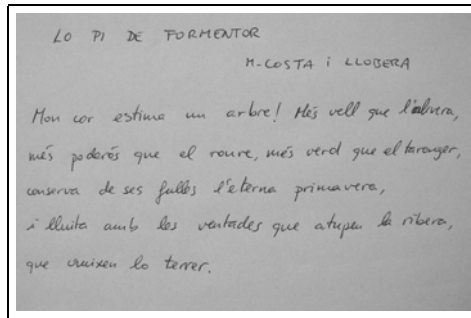 LO PI DE FORMENTOR
M. COSTA i LLOBERA
Mon cor estima un arbre! Més vell que l'olivera,
més poderós que el roure, més verd que el taronger,
conserva de ses fulles l'eterna primavera,
i lluita amb les ventades que atupen la ribera,
que cruixen lo terrer.